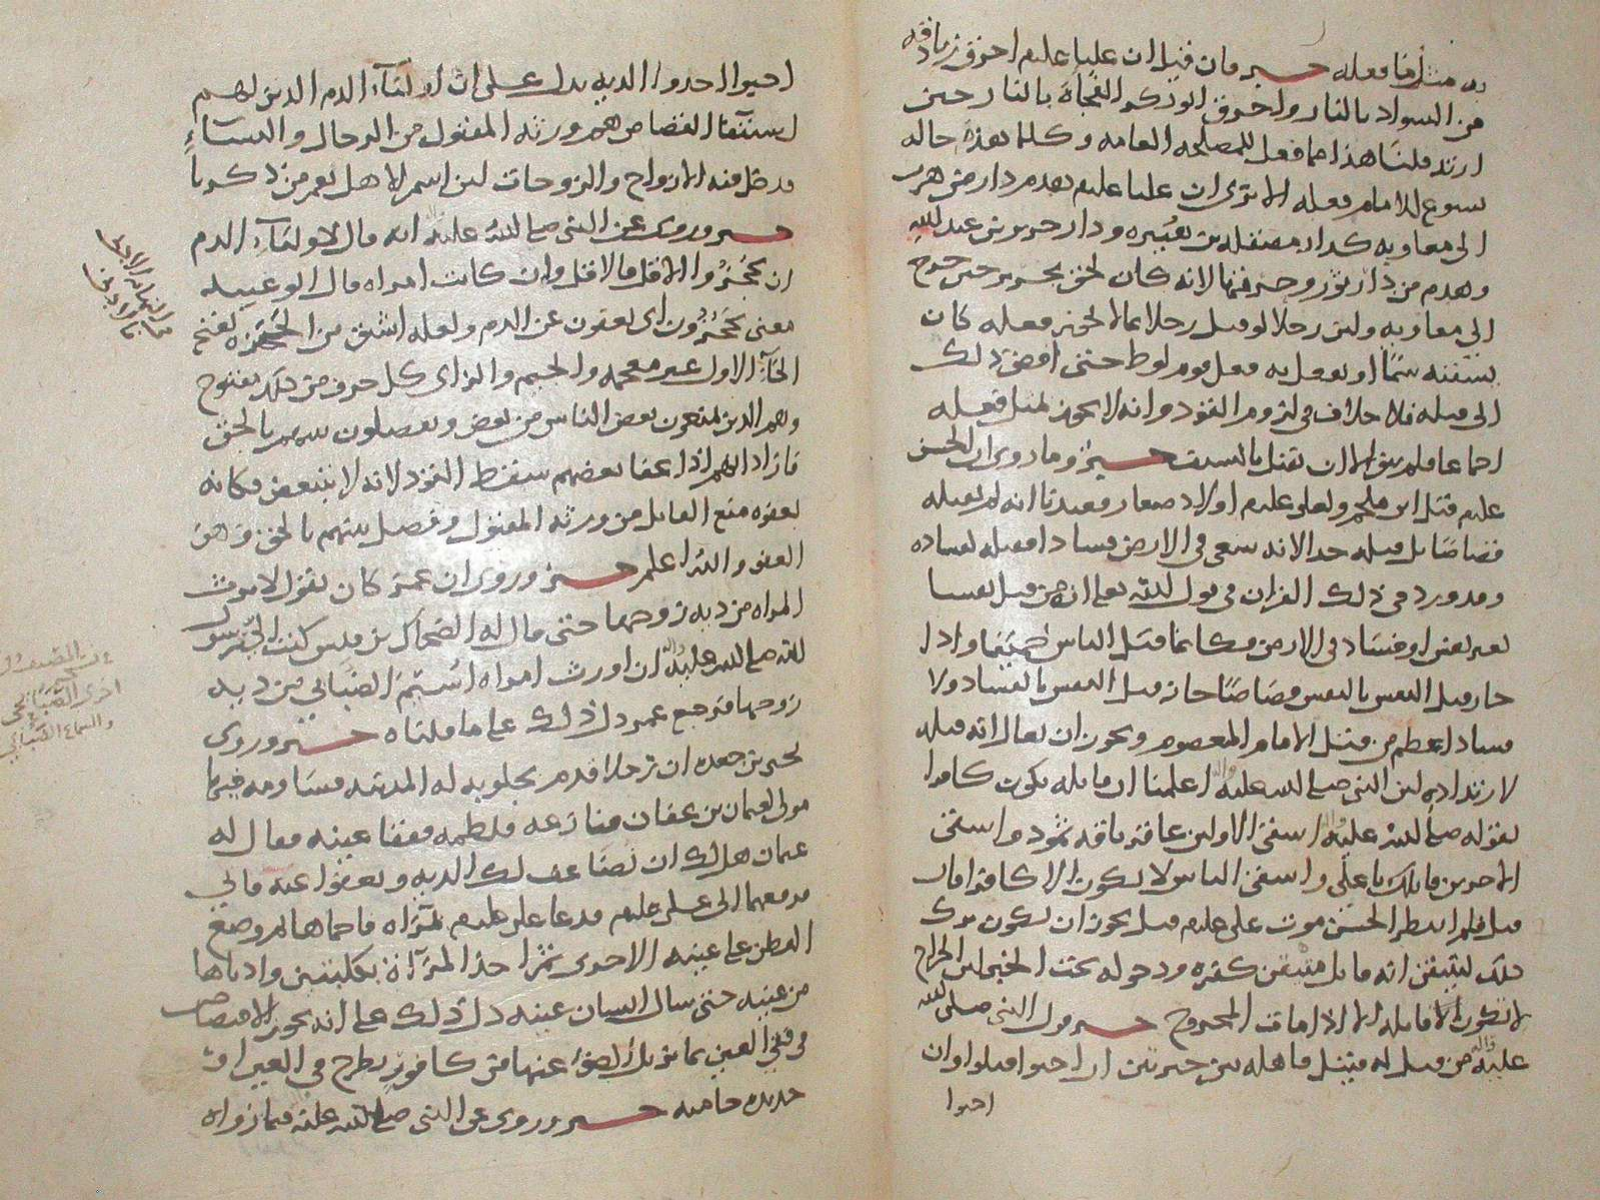 به مثل ما فعله خبر فان قيل ان عليا عليم احرق زنادقه
من السواد بالنار واحرق ابو بكر الفجاة بالنار حين
ارتد قلنا هذا مما فعل للمصلحه العامه وكلما هذه حاله
يسوغ للامام فعله الا ترى ان عليا عليم هدم دار من هرب
الى معاويه كدار مصقله بن هبيره ودار جرير بن عبد الله
وهدم من دار ثوير وحرقها لانه كان لحق بجرير حين خرج
الى معاويه ولئن رجلا لو قتل رجلا بما لا يجوز فعله كان
يسقيه سما او يفعل به فعل قوم لوط حتى افضى ذلك
الى قتله فلا خلاف في لزوم القود وانه لا يجوز لمثل فعله
اجماعا فلم يبق الا ان يقتل بالسيف خبر وما روي ان الحسن
عليم قتل ابن ملجم ولعلى عليم اولاد صغار فعندنا انه لم يقتله
قصاصا بل قتله حدا لانه سعى في الارض فسادا فقتله لفساده
وقد ورد في ذلك القران في قول الله تعالى انه من قتل نفسا
بغير نفس او فساد في الارض فكانما قتل الناس جميعا واذا
جاز قتل النفس بالنفس قصاصا جاز قتل النفس بالفساد ولا
فساد اعظم من قتل الامام المعصوم ويجوز ان يقال انه قتله
لارتداده لان النبي صلى الله عليه واله اعلمنا ان قاتله يكون كافرا
بقوله صلى الله عليه واله اشقى الاولين عاقر ناقه ثمود واشقى
الاخرين قاتلك يا على واشقى الناس لا يكون الا كافرا فان
قيل فلم انتظر الحسن موت على عليم قيل يجوز ان يكون ترك
ذلك ليتيقن انه قاتل فتيقن كفره ودخوله تحت الخبر لان الجراح
لا يكون الا قاتله الا اذا مات المجروح خبر وقول النبي صلى الله
عليه واله من قتل له قتيل فاهله بين خيرتين ان احبوا قتلوا وان
احبوا
احبوا اخذوا الديه يدل على ان اولياء الدم الذين لهم
استيفاء القصاص هم ورثه المقتول من الرجال والنساء
يدخل فيه الازواج والزوجات لان اسم الاهل يعم من ذكرنا
خبر وروي عن النبي صلى الله عليه واله انه قال لاولياء الدم
ان يحجزوا الاقل فالاقل وان كانت امراه قال ابو عبيد
معنى يحجزون اي يعفون عن الدم ولعله اشتق من الحجزه بفتح
الحاء الاول غير معجمه والجيم والزاي كل حرف من ذلك مفتوح
وهم الذين يمنعون بعض الناس من بعض ويفصلون بينهم بالحق
فاراد انهم اذا عفا بعضهم سقط القود لانه لا يتبعض فكانه
بعفوه منع القاتل من ورثه المقتول وفصل بينهم بالحق وهو
العفو والله اعلم خبر وروي ان عمر كان يقول لا يورث
المراه من ديه زوجها حتى قال له الضحاك بن قيس كتب الي رسول
الله صلى الله عليه واله ان اورث امراه اشيم الضبابي من ديه
زوجها فرجع عمر دل ذلك على ما قلناه خبر وروى
يحيى بن جعده ان رجلا قدم بجلوبه له المدينه فساومه فيها
مولى لعثمان بن عفان فنازعه فلطمه ففقا عينه فقال له
عثمان هل لك ان نضاعف لك الديه وتعفوا عنه فابي
فرفعهما الى على عليم فدعا على عليم بمراه فاحماها ثم وضع
القطن على عينه الاخرى ثم اخذ المراة بكلبتين وادناها
من عينه حتى سال انسان عينه دل ذلك على انه يجوز الاقتصاص
في فقي العين بما يزيل الضوء عنها من كافور يطرح في العين او
حديده حاميه خبر وروي عن النبي صلى الله عليه فيما رواه